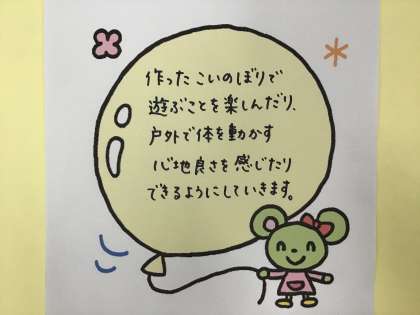 作ったこいのぼりで
遊ぶことを楽しんだり、
戸外で体を動かす
心地良さを感じたり
できるようにしていきます。